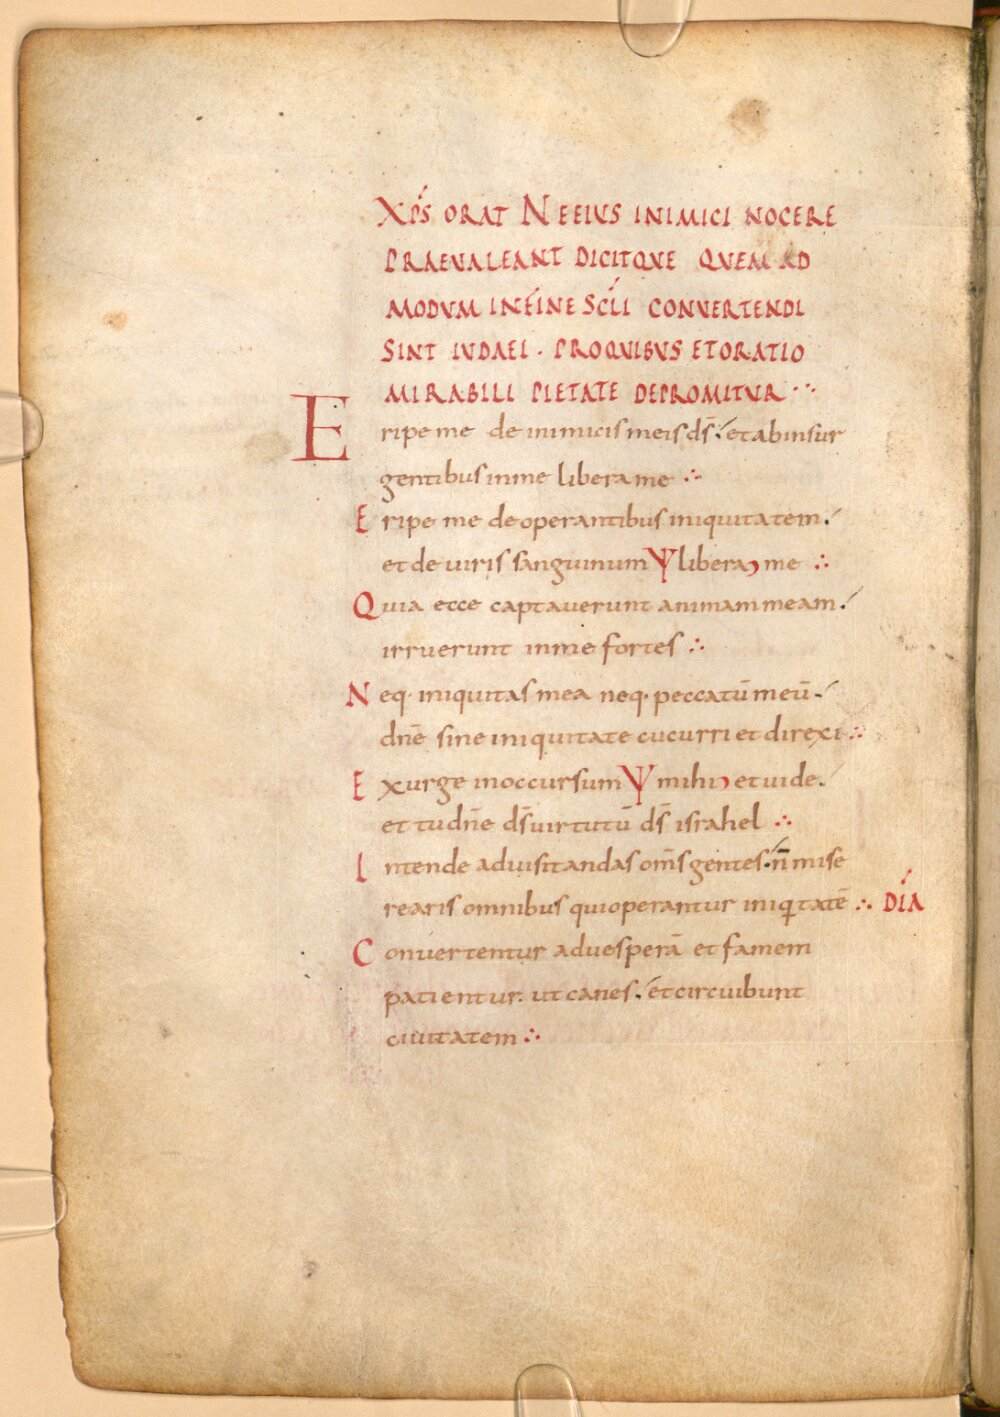 XPS ORAT NE EIUS INIMICI NOCERE
PRAEUALEANT DICITQVE QVEM AD
MODVM IN FINE SCLI CONUERTENDI
SINT IUDAEI · PRO QUIBUS ET ORATIO
MIRABILI PIETATE DEPROMITUR ∴
Eripe me de inimicis meis ds̄ ./ et ab insur
gentibus in me libera me ∴
Eripe me de operantibus iniquitatem ./
et de uiris sanguinum Ψ libera me ∴
Quia ecce captauerunt animam meam ./
irruerunt in me fortes ∴
Neq· iniquitas mea neq· peccatū meū ./
dn̄e sine iniquitate cucurri et direxi ∴
Exurge in occursum Ψ mihi et uide ./
et tu dn̄e ds̄ uirtutū ds̄ israhel ∴
Intende ad uisitandas om̄s gentes ./ n̄ mise
rearis omnibus qui operantur iniqitatē ∴ DIA
Conuertentur ad uesperā et famem
patientur. ut canes ./ et circuibunt
ciuitatem ∴